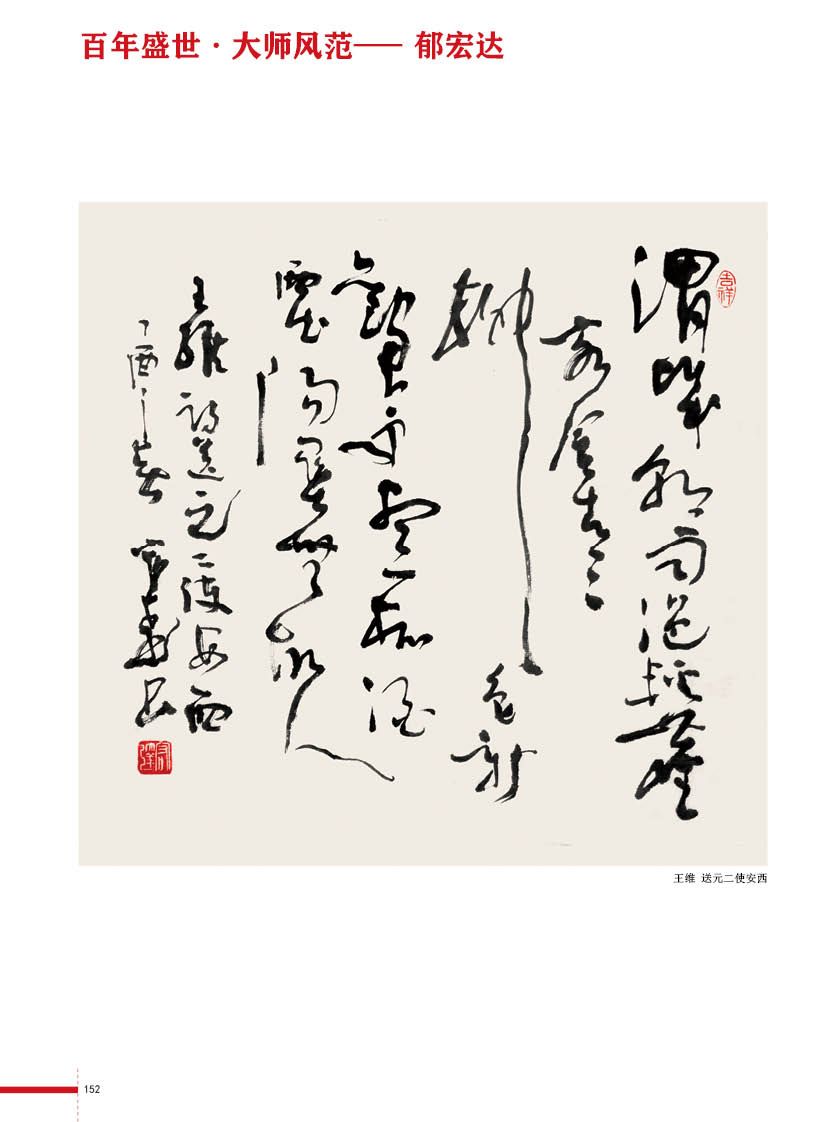 百年盛世·大师风范—— 郁宏达
吉祥
渭城朝雨浥輕塵
客舍青青
柳色新
勸君更盡一杯酒
西出陽關無故人
王維詩送元二使安西
丁酉之春 宏達書
王维 送元二使安西
152